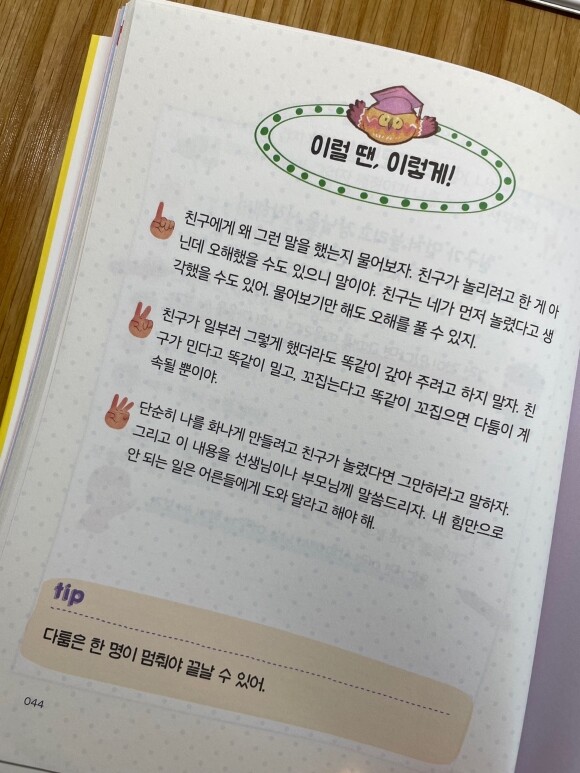 이럴 땐, 이렇게!
친구에게 왜 그런 말을 했는지 물어보자. 친구가 놀리려고 한 게 아
닌데 오해했을 수도 있으니 말이야. 친구는 네가 먼저 놀렸다고 생
각했을 수도 있어. 물어보기만 해도 오해를 풀 수 있지.
친구가 일부러 그렇게 했더라도 똑같이 갚아 주려고 하지 말자. 친
구가 민다고 똑같이 밀고, 꼬집는다고 똑같이 꼬집으면 다툼이 계
속될 뿐이야.
단순히 나를 화나게 만들려고 친구가 놀렸다면 그만하라고 말하자.
그리고 이 내용을 선생님이나 부모님께 말씀드리자. 내 힘만으로
안 되는 일은 어른들에게 도와 달라고 해야 해.
tip
다툼은 한 명이 멈춰야 끝날 수 있어.
044